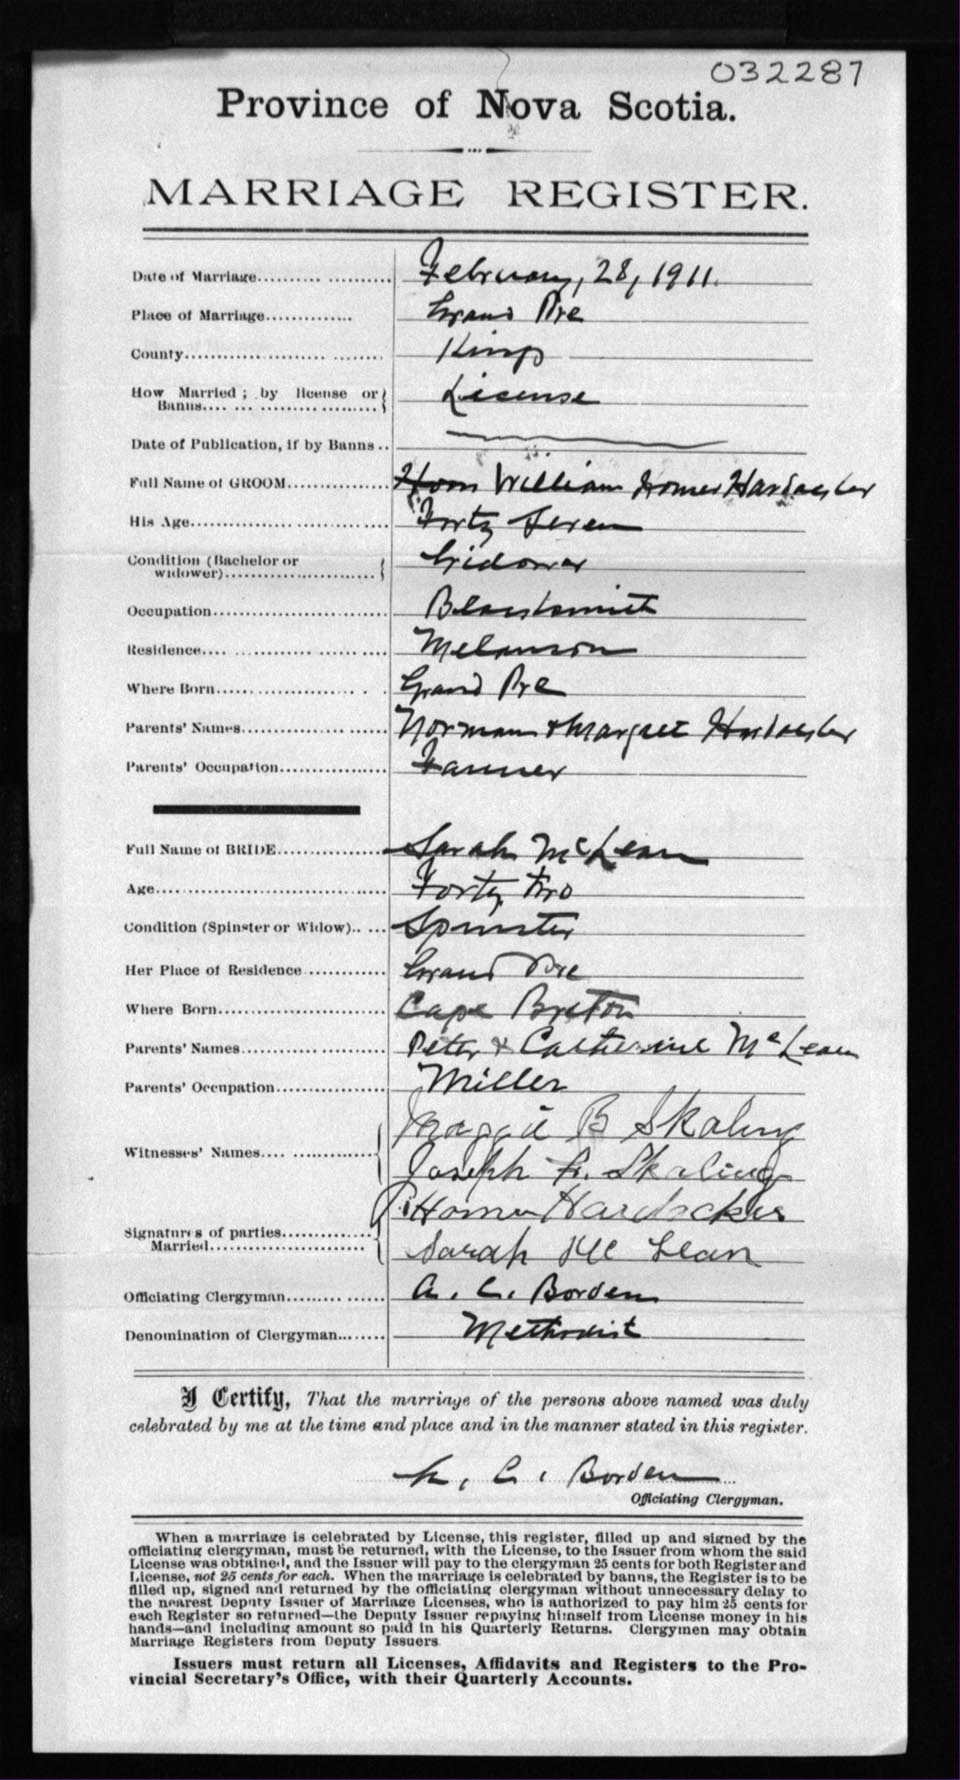 032287
Province of Nova Scotia.
MARRIAGE REGISTER.
Date of Marriage.......... February, 28, 1911.
Place of Marriage............. Grand Pre
County.......................... Kings
How Married ; by license or
Banns.... ... .................... License
Date of Publication, if by Banns ..
Full Name of GROOM................ William Homer
His Age............................ Forty Seven
Condition (Bachelor or
widower)......................... Widower
Occupation......................... Blacksmith
Residence.... ............... ........ Melanson
Where Born.................... . . Grand Pre
Parents' Names..................... Norman & Margret
Parents' Occupation................ Farmer
Full Name of BRIDE................ Sarah McLean
Age................................ Forty two
Condition (Spinster or Widow).. ... Spinster
Her Place of Residence............ Grand Pre
Where Born......................... Cape Breton
Parents' Names..................... Peter & Catherine McLean
Parents' Occupation................ Miller
Maggie B Skaling
Witnesses' Names.... ..............
Joseph Skaling
Homer
Signatures of parties..............
Married.......................
Sarah Mc Lean
Officiating Clergyman......... ...... A. C. Borden
Denomination of Clergyman........ Methodist
I Certify, That the marriage of the persons above named was duly
celebrated by me at the time and place and in the manner stated in this register.
A. C. Borden
Officiating Clergyman.
When a marriage is celebrated by License, this register, filled up and signed by the
officiating clergyman, must be returned, with the License, to the Issuer from whom the said
License was obtained, and the Issuer will pay to the clergyman 25 cents for both Register and
License, not 25 cents for each. When the marriage is celebrated by banns, the Register is to be
filled up, signed and returned by the officiating clergyman without unnecessary delay to
the nearest Deputy Issuer of Marriage Licenses, who is authorized to pay him 25 cents for
each Register so returned—the Deputy Issuer repaying himself from License money in his
hands—and including amount so paid in his Quarterly Returns. Clergymen may obtain
Marriage Registers from Deputy Issuers
Issuers must return all Licenses, Affidavits and Registers to the Pro-
vincial Secretary's Office, with their Quarterly Accounts.